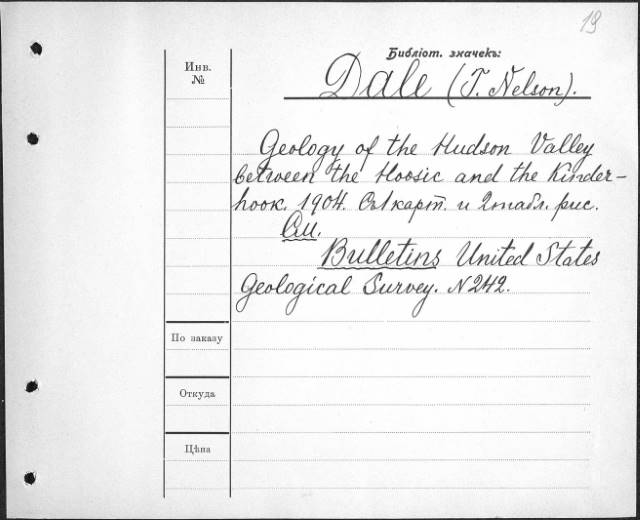 19
Библіот. значекъ:
Инв.
№
Dale (T. Nelson).
Geology of the Hudson Valley
between the Hoosic and the Kinder-
hook. 1904. Съ 1 карт. и 2 табл. рис.
См.
Bulletins United States
Geological Survey. N 242.
По заказу
Откуда
Цѣна